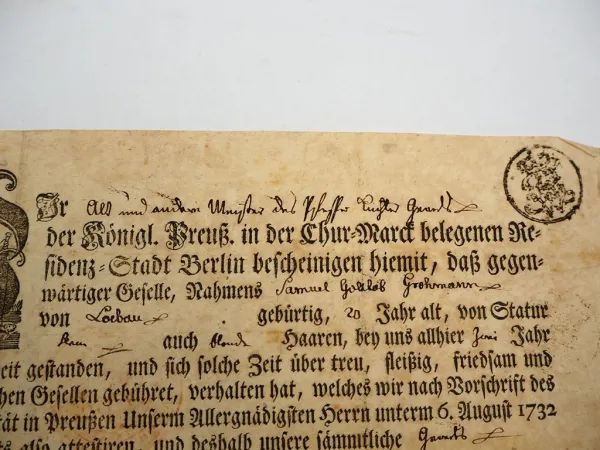 Jr Alt und andere Meister des
der Königl. Preuß. in der Chur-Marck belegenen Re-
sidenz-Stadt Berlin bescheinigen hiemit, daß gegen-
wärtiger Geselle, Nahmens Samuel Gottlob Grohmann
von Loebau gebürtig, 20 Jahr alt, von Statur
auch blonde Haaren, bey uns allhier Jahr
eit gestanden, und sich solche Zeit über treu, fleißig, friedsam und
hen Gesellen gebühret, verhalten hat, welches wir nach Vorschrift des
tät in Preußen Unserm Allergnädigsten Herrn unterm 6. August 1732
ts also attestiren, und deshalb unsere sämmtliche